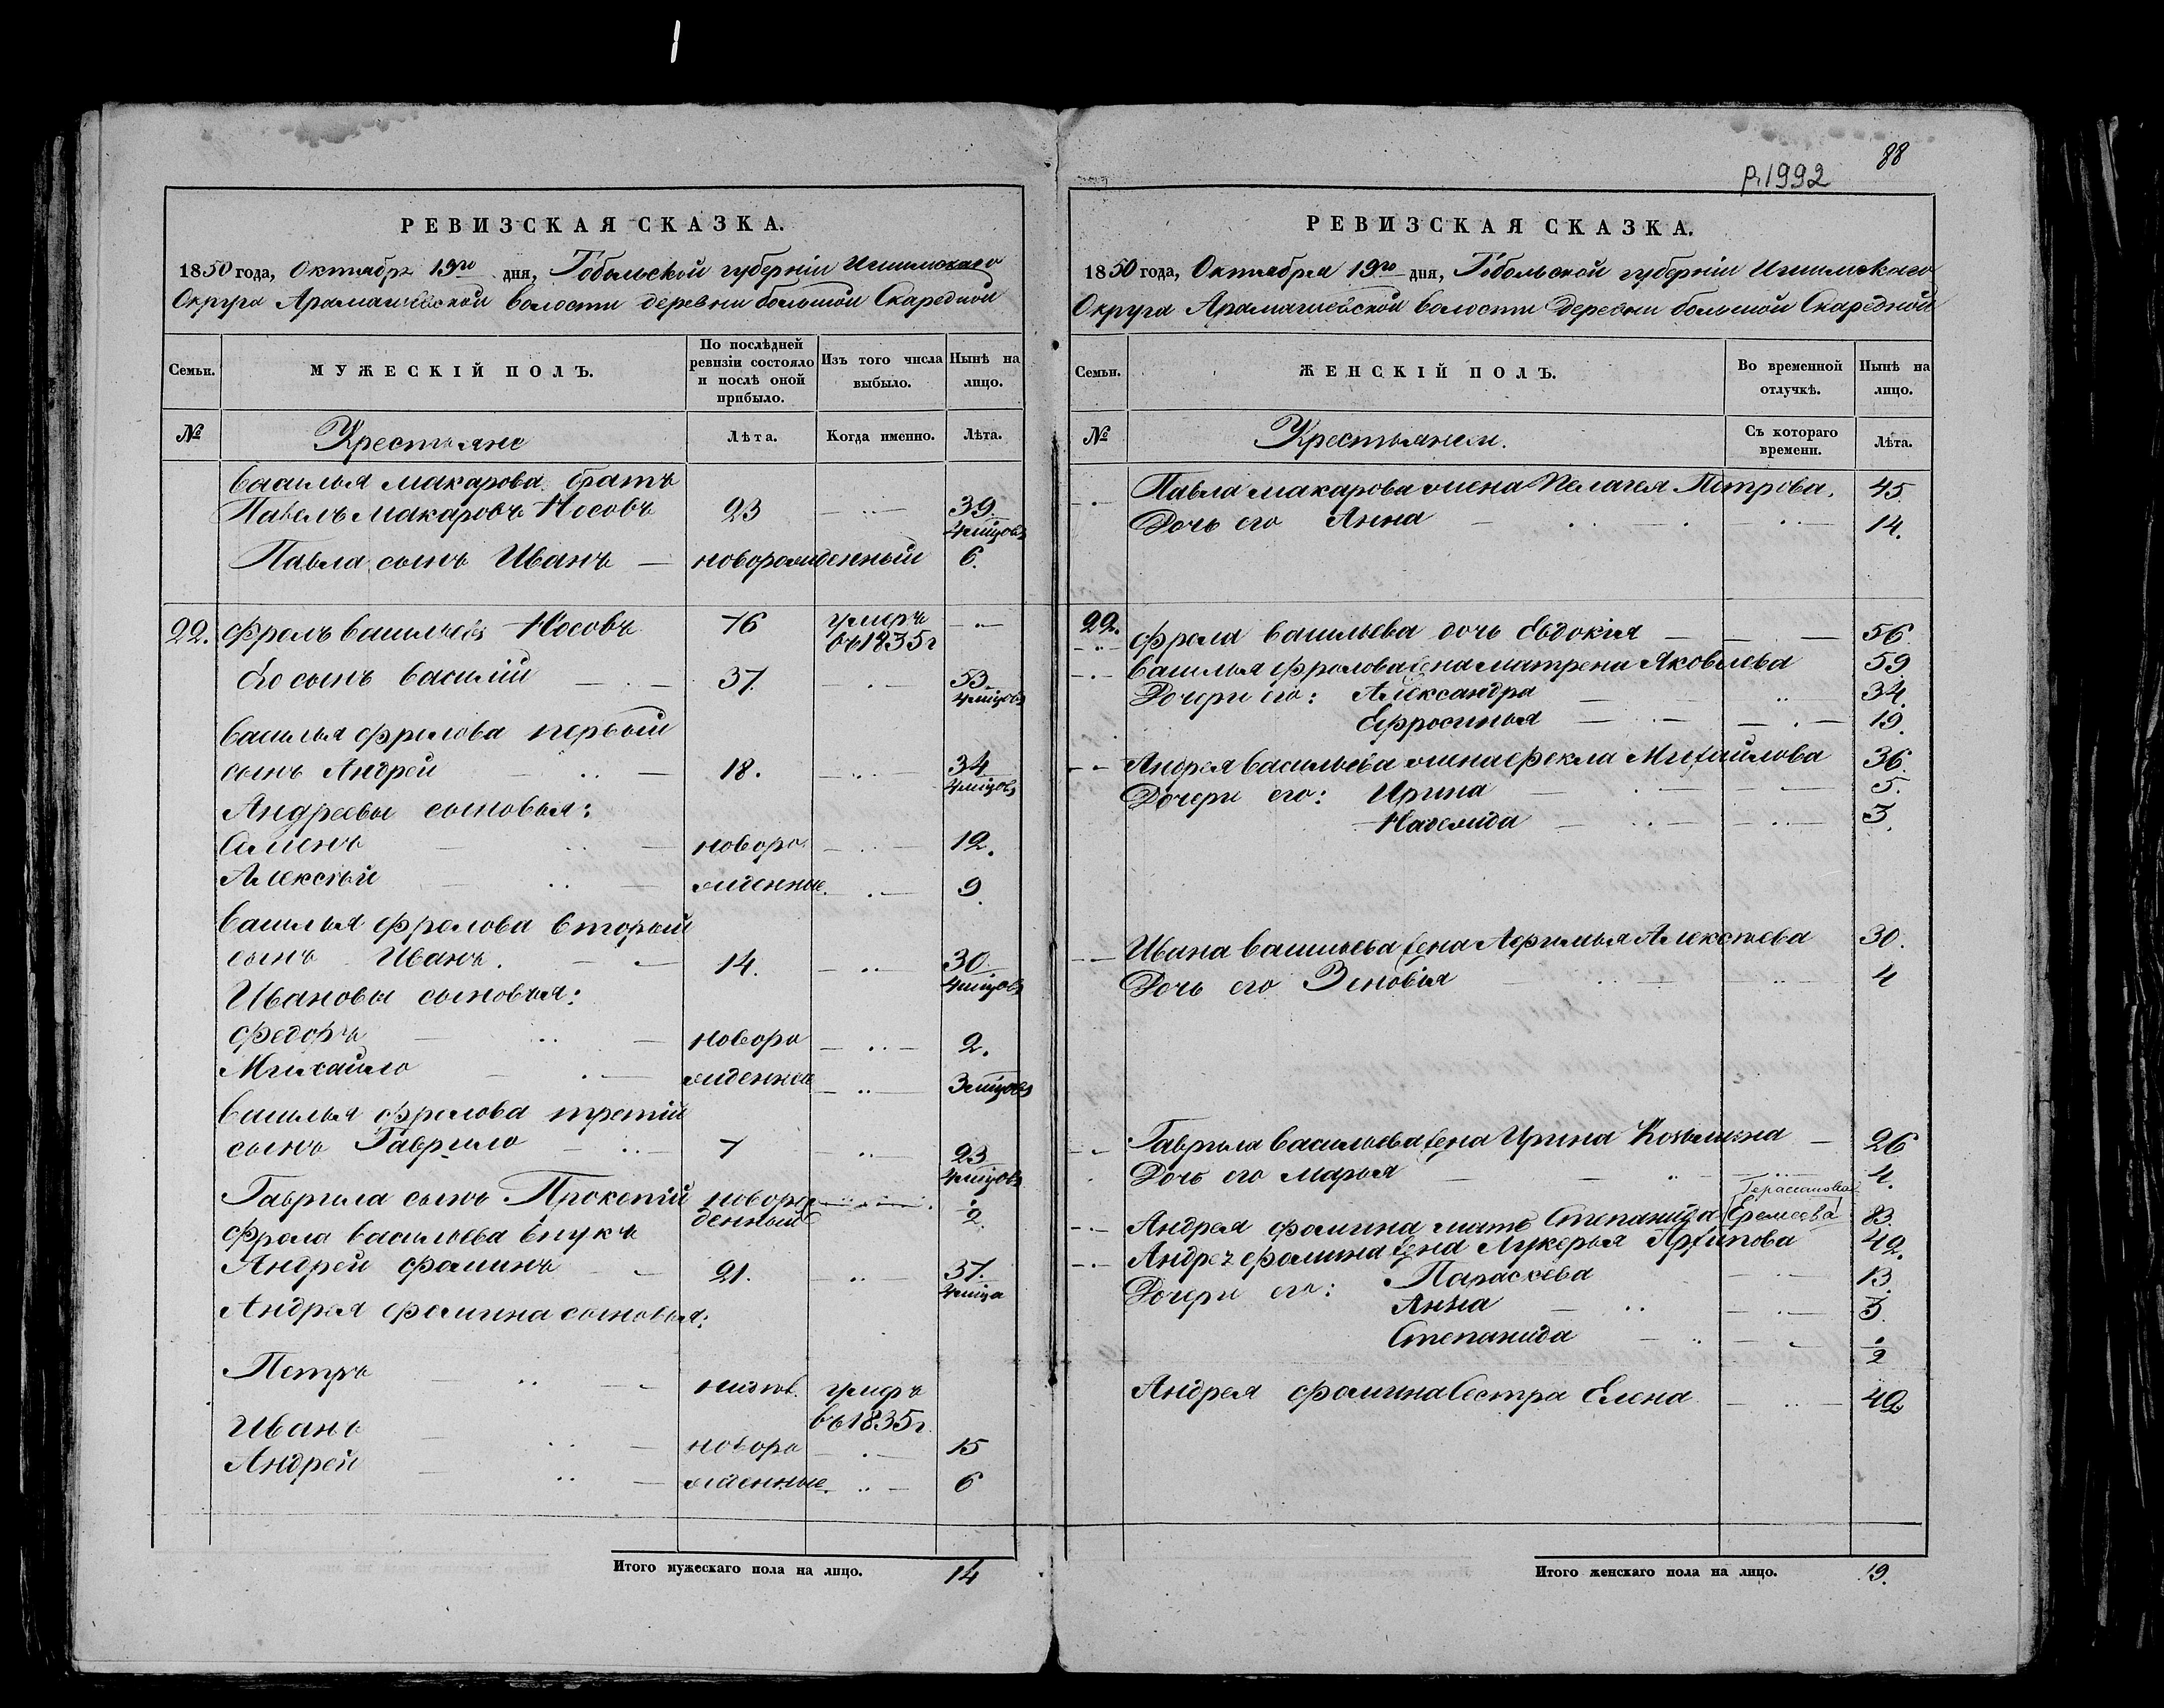 88
Р.1992
РЕВИЗСКАЯ СКАЗКА.
1850 года, Октября 19го дня, Тобольской губернiи Ишимскаго
Округа Арамашевской волости деревни большой Скаредной
Семьи.
МУЖЕСКIЙ ПОЛЪ.
По послѣдней ревизiи состояло и послѣ оной прибыло.
Изъ того числа выбыло.
Нынѣ на лицо.
№
Крестьяне
Лѣта.
Когда именно.
Лѣта.
Василья Макарова братъ
Павелъ Макаровъ Носовъ 23 39 4 мцовъ
Павла сынъ Иванъ новорожденный 6.
22. Фролъ Васильевъ Носовъ 76 умеръ въ 1835 г
Его сынъ Василiй 37. 53 4 мцовъ
Василья Фролова первый
сынъ Андрей 18. 34 4 мцовъ
Андреевы сыновья:
Семенъ новоро 12.
Алексѣй жденные. 9.
Василья Фролова вторый
сынъ Иванъ. 14. 30 4 мцовъ
Ивановы сыновья:
Федоръ новоро 2.
Михайло жденные 3 мцовъ
Василья Фролова третiй
сынъ Гаврило 7 23 4 мцовъ
Гаврила сынъ Прокопiй новорожденный ½
Фрола Васильева внукъ
Андрей Фоминъ 21. 37. 4 мца
Андрея Фомина сыновья:
Петръ умеръ въ 1835 г.
Иванъ новоро 15
Андрей жденные. 6
Итого мужескаго пола на лицо. 14
РЕВИЗСКАЯ СКАЗКА.
1850 года, Октября 19го дня, Тобольской губернiи Ишимскаго
Округа Арамашевской волости деревни большой Скаредной
Семьи.
ЖЕНСКIЙ ПОЛЪ.
Во временной отлучкѣ.
Нынѣ на лицо.
№
Крестьянки.
Съ котораго времени.
Лѣта.
Павла Макарова жена Пелагея Петрова. 45
Дочь его Анна 14.
22. Фрола Васильева дочь Евдокiя 56
Василья Фролова жена Матрена Яковлева 59
Дочери его: Александра 34.
Ефросинья 19.
Андрея Васильева жена Фекла Михайлова 36
Дочери его: Ирина 5.
Надежда 3.
Ивана Васильева жена Афимья Алексѣева 30.
Дочь его Зеновiя 4
Гаврила Васильева жена Ирина Козьмина 26
Дочь его Марья 4.
Герасимова
Андрея Фомина мать Степанида Еремеева 83.
Андрея Фомина жена Лукерья Архипова 42.
Дочери его: Параскева 13.
Анна 3.
Степанида ½
Андрея Фомина Сестра Елена 42
Итого женскаго пола на лицо. 19.